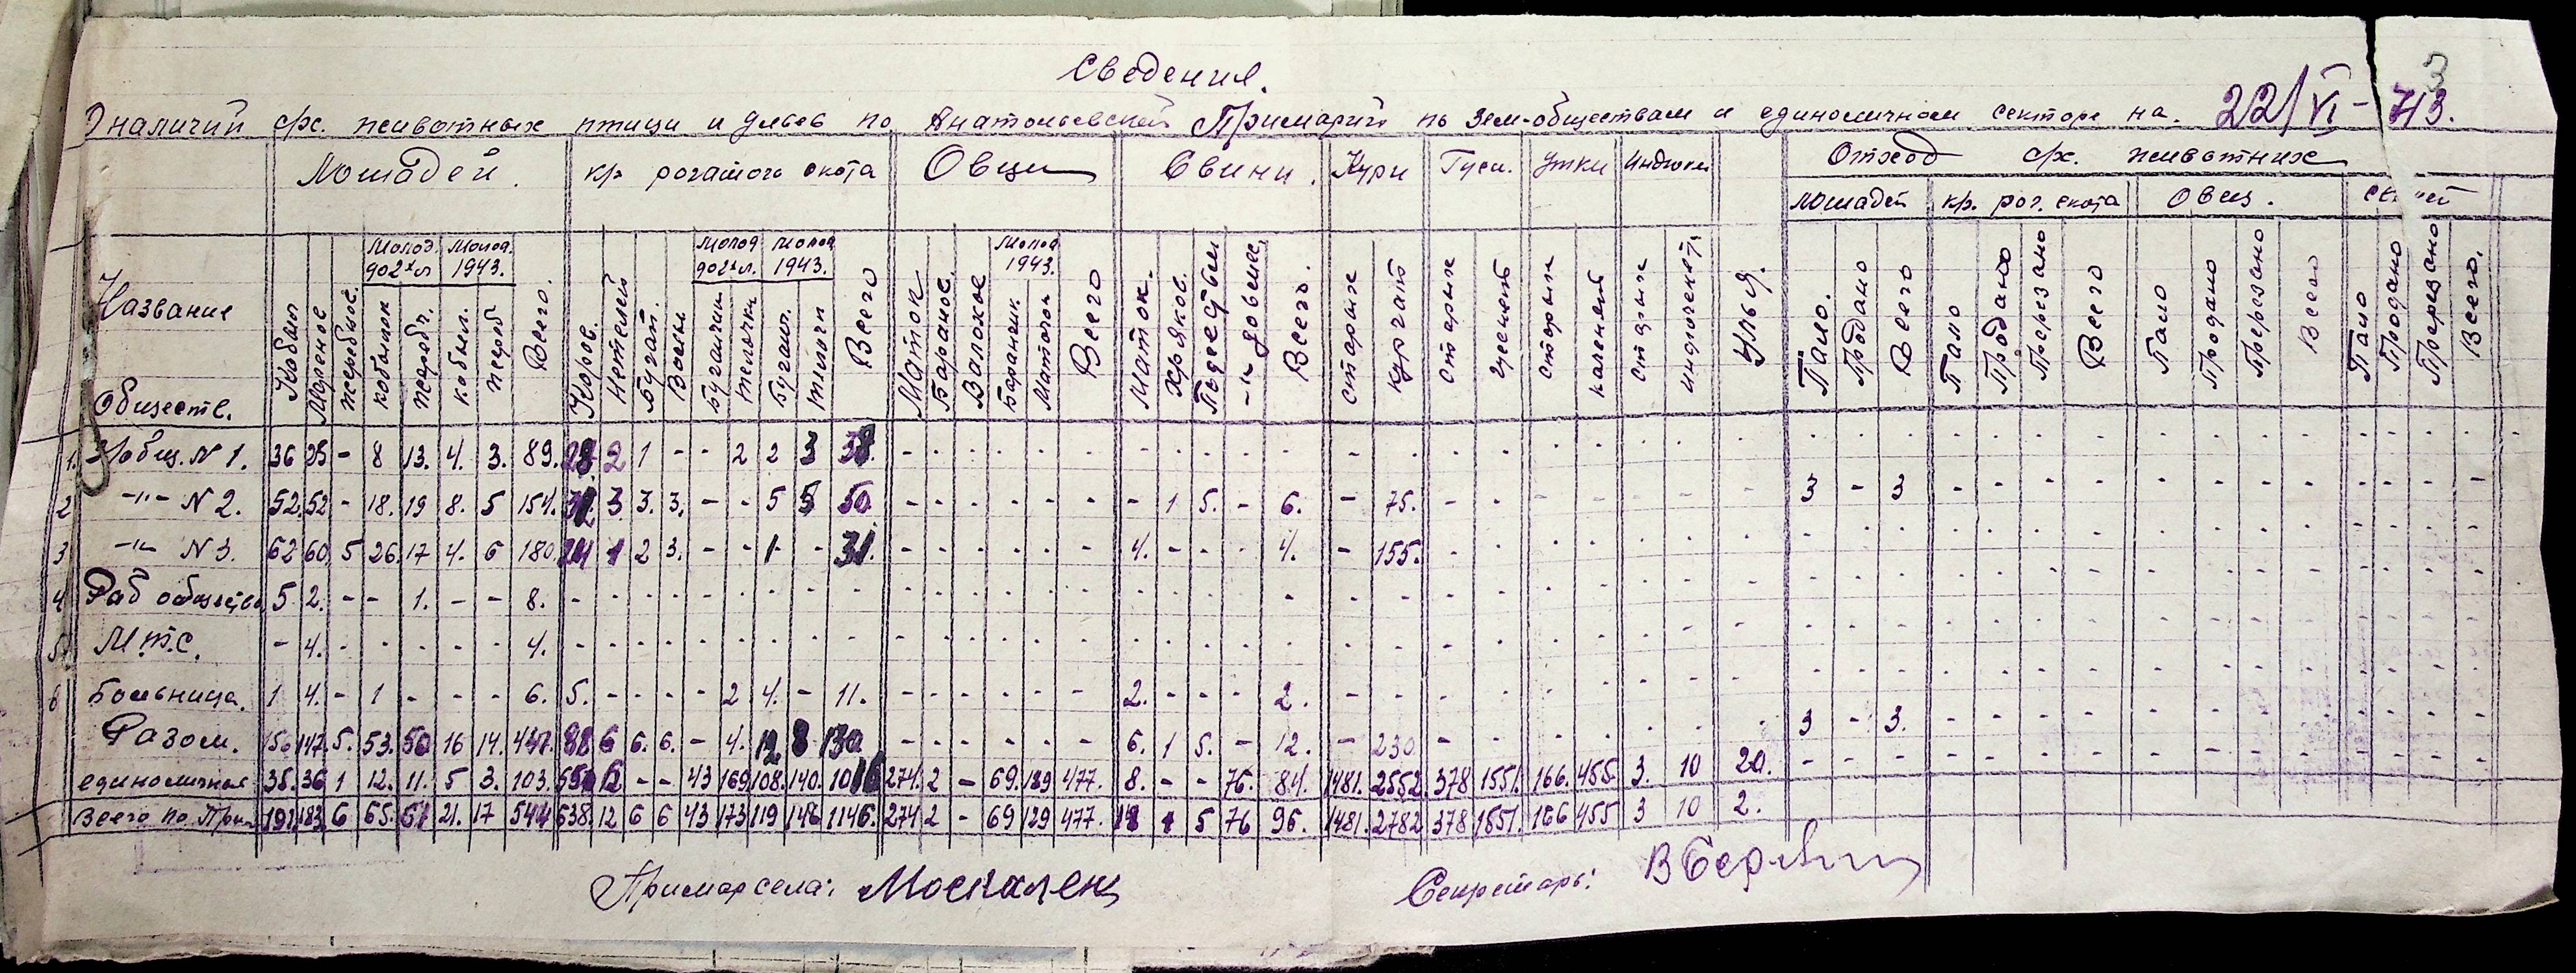 Сведения.
О наличии с/х. животных птици и ульев по Анатольевской Примарии по зем-обществам и единоличном секторе на. 22/VI-43.
Лошадей. кр рогатого скота Овци Свини. Кури Гуси. Утки Индюки Отход с/х. животних
лошадей кр. рог. скота Овец.
Молод. до 2х л Молод 1943. Молод до 2х л. Молод 1943. Молод 1943.
Название Обществ.
Кобыл Меренов Жеребцов. кобылок жеребч. кобыл. жереб Всего.
Коров. Нетелей Бугаи. Волы Бугайчики телочки Бугаич. телочки Всего
Маток Баранов. Валохов Баранчик. Маточек Всего
Маток. Хряков. Подсвин -"- до 4 мес Всего.
старых курчат старых гусенят старых каченят старых индюченят Улья.
Пало. Продано Всего Пало Продано Прирезано Всего Пало Продано Прирезано Всего Пало Продано Прирезано Всего.
1. З/общ. N 1. 36 25 - 8 13. 4. 3. 89. 28 2 1 - - 2 2 3 38. - - - - - - - - - - - - - - - - - - - -
2 -"- N 2. 52 52 - 18. 19 8. 5 154. 31 3 3. 3. - - 5 5 50. - - - - - - - 1 5. - 6. - 75. - - - - - - - 3 - 3
3 -"- N 3. 62 60 5 26. 17 4. 6 180 24 1 2 3. - - 1 - 31. - - - - - - 4. - - - 4. - 155. - - - - - - -
4 Раб общество 5 2. - - 1. - - 8. - - - - - - - - - - - - - - - - - - - - - - - - - - - - -
5. М.т.с. - 4. - - - - - 4. - - - - - - - - - - - - - - - - - - - - - - - - - - - - -
6 Больница. 1 4. - 1 - - - 6. 5. - - - - 2 4. - 11. - - - - - - 2. - - - 2. - - - - - - - - -
Разом. 156 147 5. 53. 50 16 14. 441. 88 6 6. 6. - 4. 12 8 130 - - - - - - 6. 1 5. - 12. - 230 - - - - - - - 3 - 3.
единоличная 35. 36 1 12. 11. 5 3. 103. 550 6 - - 43 169 108. 140. 1016 274. 2 - 69. 129 477. 8. - - 76. 84. 1481. 2552. 378 1551. 166. 455 3. 10 20.
Всего по Прим 191 183 6 65. 61 21. 17 544 638. 12 6 6 43 173 119 148 1146. 274 2 - 69 129 477. 14 1 5 76 96. 1481. 2782 378 1551. 166 455 3 10 2.
Примар села: Москаленк
Секретарь: